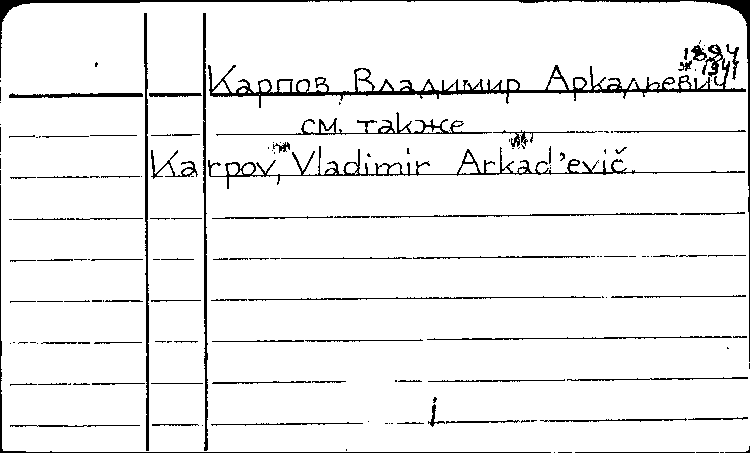 1884
Карпов, Владимир Аркадьевич.
1941
см. также
Karpov, Vladimir Arkad'evič.